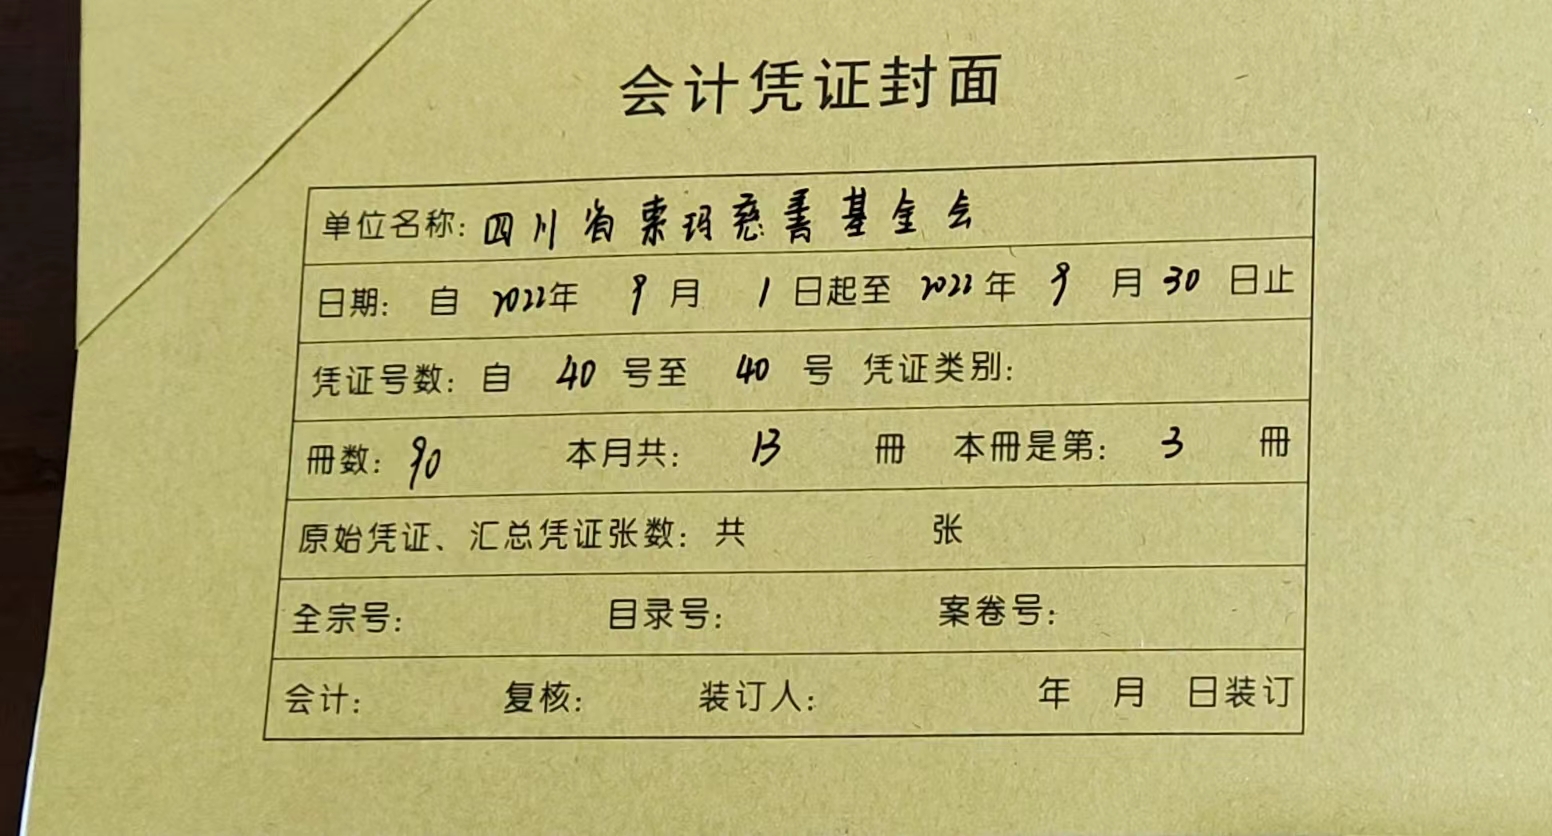 会计凭证封面
单位名称: 四川省索玛慈善基金会
日期: 自 2022年 9月 1日起至 2022年 9月 30日止
凭证号数: 自 40 号至 40 号 凭证类别:
冊数: 90 本月共: 13 冊 本冊是第: 3 冊
原始凭证、汇总凭证张数: 共 张
全宗号: 目录号: 案卷号:
会计: 复核: 装订人: 年 月 日装订